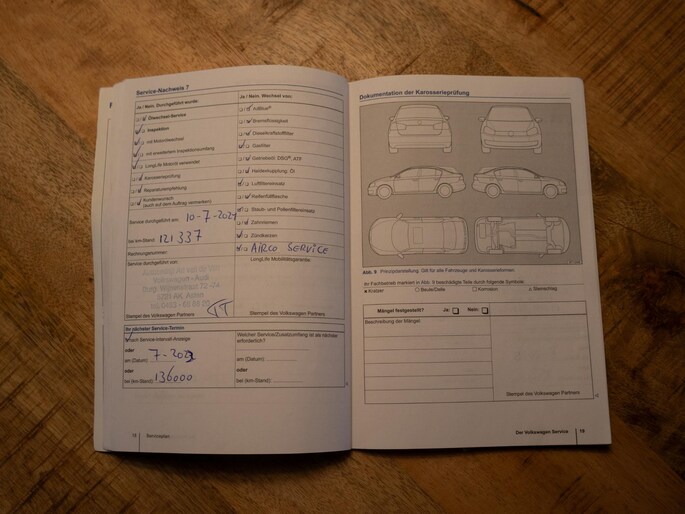 Service-Nachweis 7
Ja / Nein. Durchgeführt wurde:
Ölwechsel-Service
Inspektion
mit Motorölwechsel
mit erweitertem Inspektionsumfang
LongLife Motoröl verwendet
Karosserieprüfung
Reparaturempfehlung
Kundenwunsch
(auch auf dem Auftrag vermerken)
Service durchgeführt am: 10-7-2021
bei km-Stand: 121337
Rechnungsnummer:
Service durchgeführt von:
Stempel des Volkswagen Partners
Ja / Nein. Wechsel von:
AdBlue®
Bremsflüssigkeit
Dieselkraftstofffilter
Gasfilter
Getriebeöl: DSG®, ATF
Haldexkupplung: Öl
Luftfiltereinsatz
Keilrippenriemen
Staub- und Pollenfiltereinsatz
Zahnriemen
Zündkerzen
AIRCO SERVICE
LongLife Mobilitätsgarantie:
Stempel des Volkswagen Partners
Ihr nächster Service-Termin
nach Service-Intervall-Anzeige
oder
am (Datum): 7-2022
oder
bei (km-Stand): 136000
Welcher Service/Zusatzumfang ist als nächster
erforderlich?
am (Datum):
oder
bei (km-Stand):
18 Serviceplan
Dokumentation der Karosserieprüfung
Abb. 9 Prinzipdarstellung: Gilt für alle Fahrzeuge und Karosserieformen.
Im Fachbetrieb markiert in Abb. 9 beschädigte Teile durch folgende Symbole:
Kratzer Beule/Delle Korrosion Steinschlag
Mängel festgestellt? Ja: Nein:
Beschreibung der Mängel:
Stempel des Volkswagen Partners
Der Volkswagen Service 19